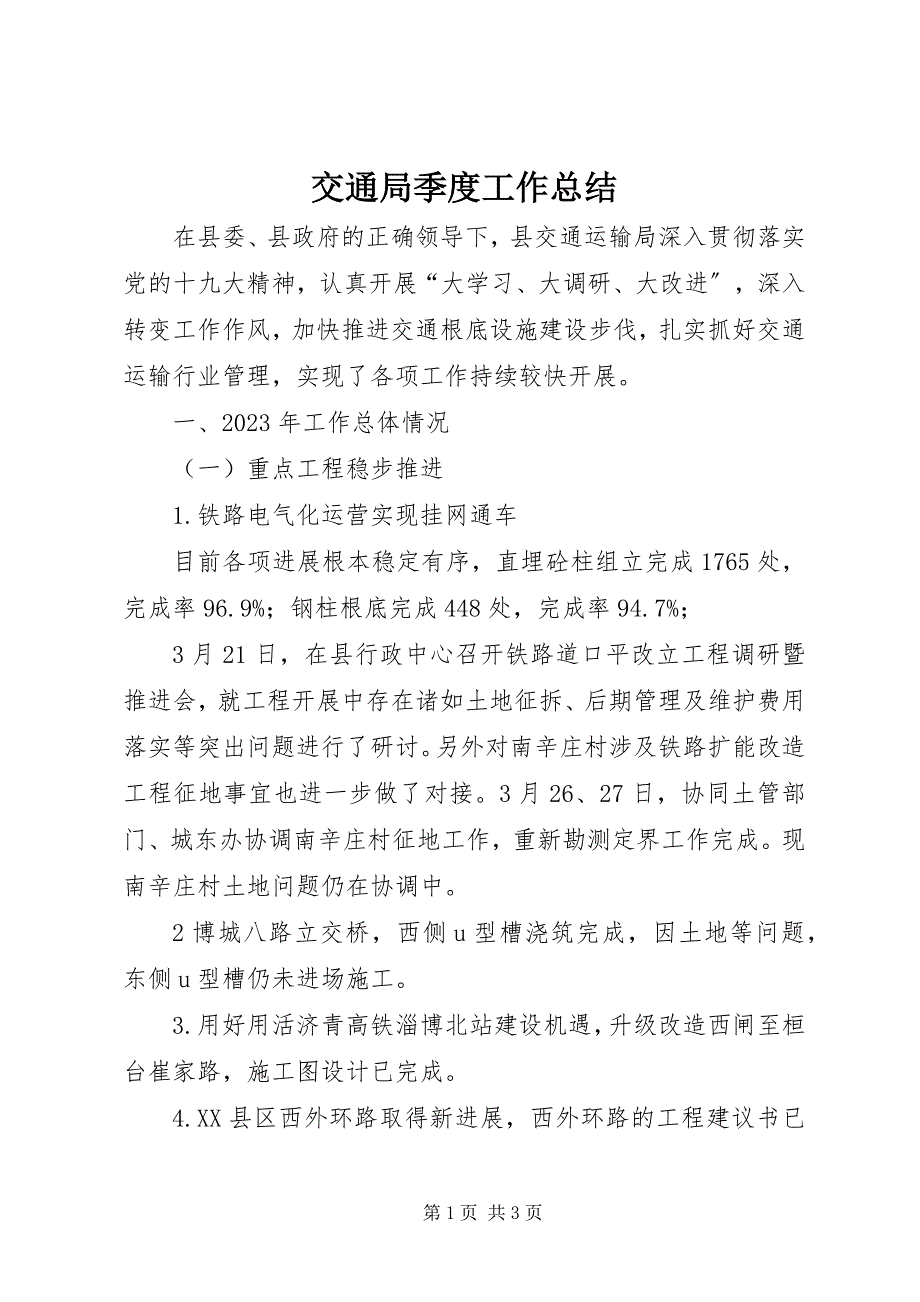 交通局季度工作总结
在县委、县政府的正确领导下，县交通运输局深入贯彻落实
党的十九大精神，认真开展“大学习、大调研、大改进〞，深入
转变工作作风，加快推进交通根底设施建设步伐，扎实抓好交通
运输行业管理，实现了各项工作持续较快开展。
一、2023 年工作总体情况
（一）重点工程稳步推进
1.铁路电气化运营实现挂网通车
目前各项进展根本稳定有序，直埋砼柱组立完成 1765 处，
完成率 96.9%；钢柱根底完成 448 处，完成率 94.7%；
3 月 21 日，在县行政中心召开铁路道口平改立工程调研暨
推进会，就工程开展中存在诸如土地征拆、后期管理及维护费用
落实等突出问题进行了研讨。另外对南辛庄村涉及铁路扩能改造
工程征地事宜也进一步做了对接。3 月 26、27 日，协同土管部
门、城东办协调南辛庄村征地工作，重新勘测定界工作完成。现
南辛庄村土地问题仍在协调中。
2 博城八路立交桥，西侧 u 型槽浇筑完成，因土地等问题，
东侧 u 型槽仍未进场施工。
3.用好用活济青高铁淄博北站建设机遇，升级改造西闸至桓
台崔家路，施工图设计已完成。
4.XX 县区西外环路取得新进展，西外环路的工程建议书已
第 1 页 共 3 页